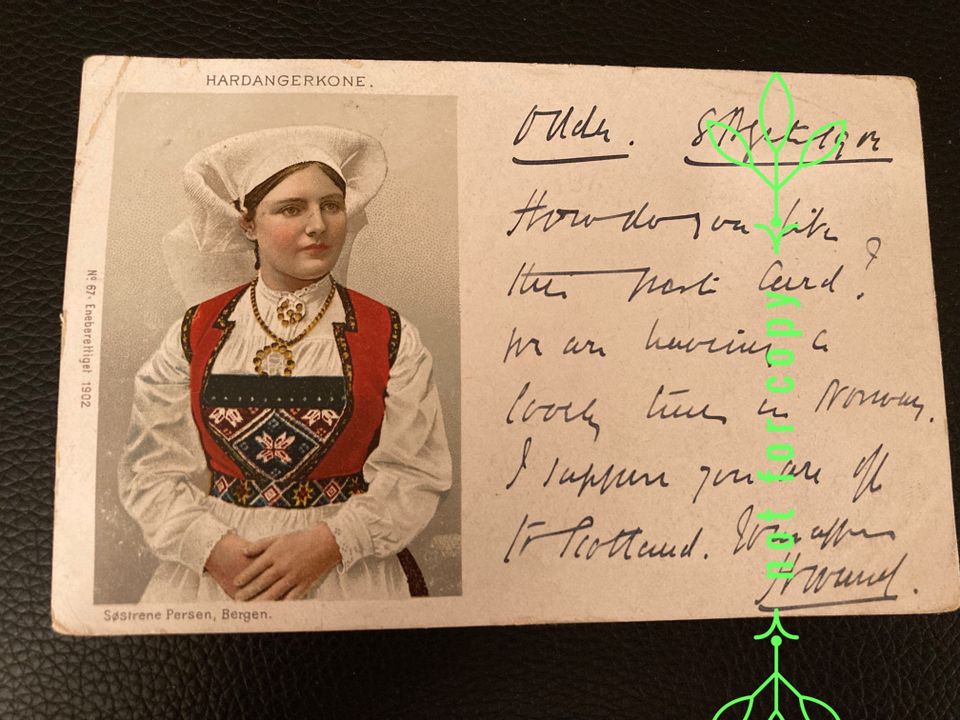 HARDANGERKONE.
Nº 67. Eneberettiget 1902
Søstrene Persen, Bergen.
Odde.
How do you like
this post card?
We are having a
lovely time in Norway.
I suppose you are off
to Scotland.
not for copy